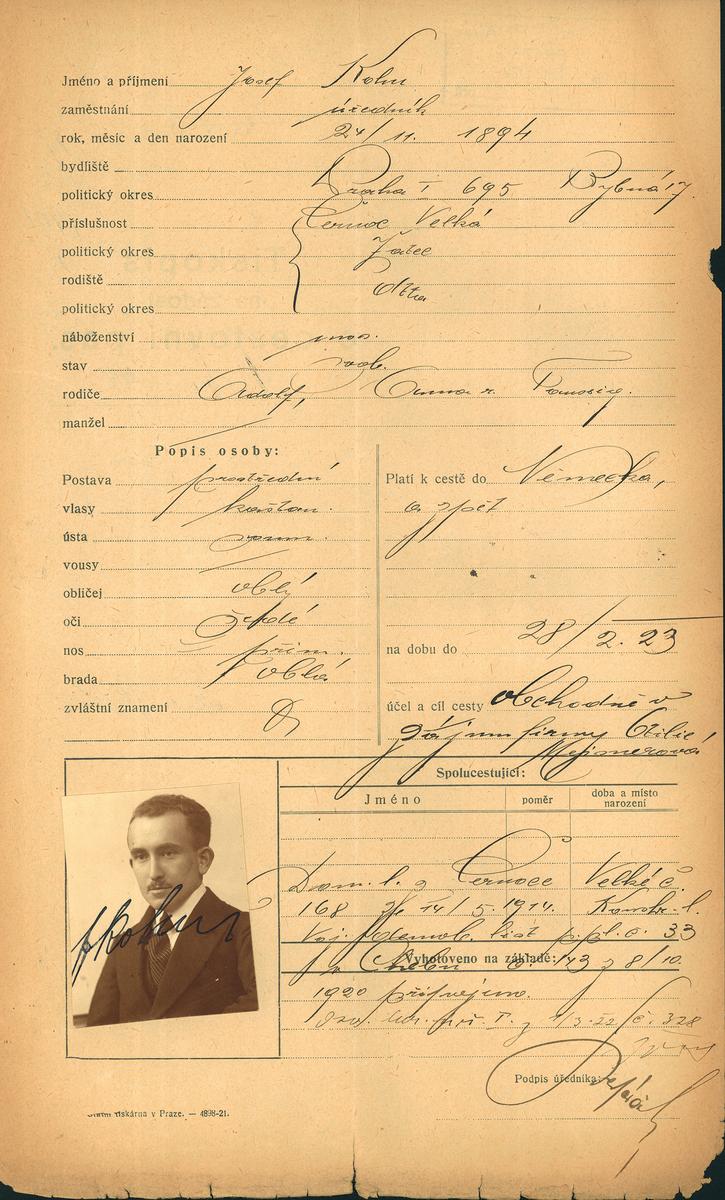 Jméno a příjmení Josef Kohn
zaměstnání úředník
rok, měsíc a den narození 24/11. 1894
bydliště
politický okres Praha I 695 Rybná 17.
příslušnost Černoc Velká
politický okres Žatec
rodiště dtto
politický okres
náboženství
stav svob.
rodiče Adolf, Anna r.
manžel
Popis osoby:
Postava prostřední
vlasy kaštan.
ústa
vousy
obličej oblý
oči šedé
nos přim.
brada oblá
zvláštní znamení
Platí k cestě do Německa,
a zpět
na dobu do 28/2. 23
účel a cíl cesty obchodně v
zájmu firmy Otilie
Spolucestující:
Jméno poměr doba a místo narození
Dom. l. z Černoce Velké č.
168 14/5. 1914. l.
Voj. demob. list p. pl. č. 33
Vyhotoveno na základě:
v Chebu č. 143 z 8/10.
1920
1/3. 22 č. 328
Podpis úředníka:
JKohn
tiskárna v Praze. — 4898-21.